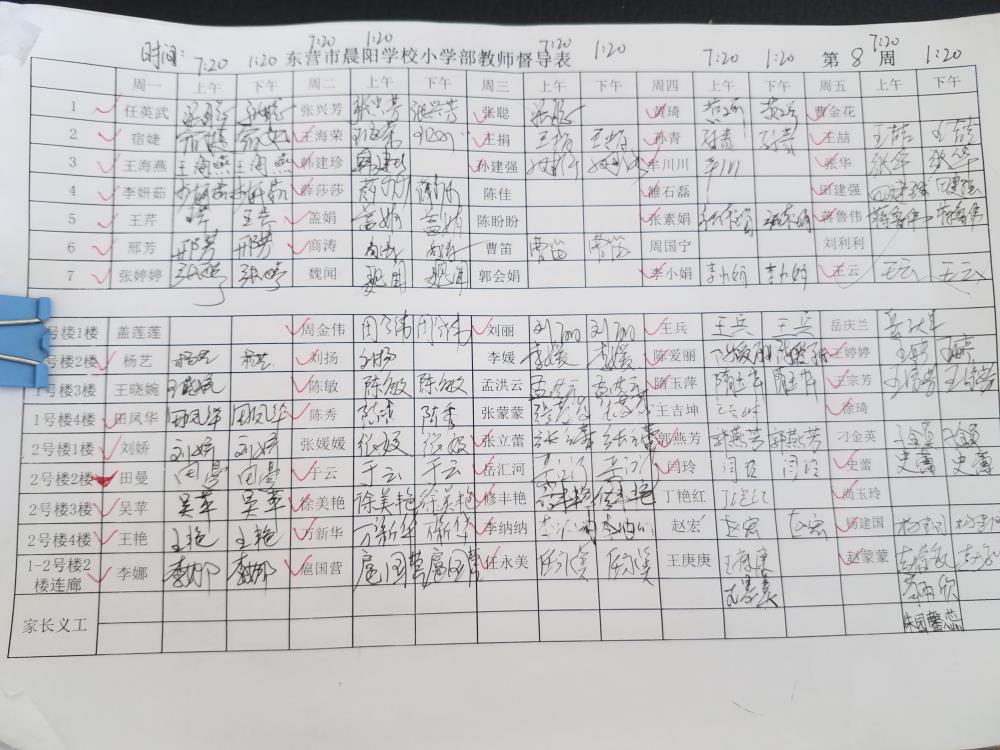 时间: 7:20 1:20 7:20 1:20 7:20 1:20 7:20 1:20 7:20 1:20
东营市晨阳学校小学部教师督导表 第 8 周
周一 上午 下午 周二 上午 下午 周三 上午 下午 周四 上午 下午 周五 上午 下午
1 任英武 张兴芳 张兴芳 张兴芳 张聪 张聪 黄琦 黄琦 黄琦 曹金花
2 宿婕 宿婕 宿婕 王海荣 王海荣 王捐 王捐 王捐 孙青 孙青 孙青 王喆 王喆 王喆
3 王海燕 王海燕 王海燕 韩建珍 韩建珍 孙建强 孙建强 孙建强 牟川川 牟川 张华 张华 张华
4 李妍茹 李妍茹 李妍茹 薛莎莎 陈佳 雒石磊 田建强 田建强 田建强
5 王芹 王芹 王芹 盖娟 盖娟 盖娟 陈盼盼 张素娟 张素娟 张素娟 蒋鲁伟 蒋鲁伟 蒋鲁伟
6 邢芳 邢芳 邢芳 商涛 商涛 商涛 曹笛 曹笛 曹笛 周国宁 刘利利
7 张婷婷 张婷 张婷 魏闻 魏闻 魏闻 郭会娟 李小娟 李小娟 李小娟 王云 王云 王云
号楼1楼 盖莲莲 周金伟 周金伟 周金伟 刘丽 刘丽 刘丽 王兵 王兵 王兵 岳庆兰
号楼2楼 杨艺 杨艺 杨艺 刘扬 刘扬 李媛 李媛 李媛 陈爱丽 陈爱丽 王婷婷 王婷 王婷
1号楼3楼 王晓婉 王晓婉 陈敏 陈敏 陈敏 孟洪云 孟洪云 孟洪云 隋玉萍 隋玉萍 隋玉萍 王宗芳 王宗芳 王宗芳
1号楼4楼 田凤华 田凤华 田凤华 陈秀 陈秀 陈秀 张蒙蒙 王吉坤 王吉坤 徐琦
2号楼1楼 刘娇 刘娇 刘娇 张媛媛 张媛 张媛 张立蕾 张立蕾 张立蕾 郭燕芳 郭燕芳 郭燕芳 刁金英 刁金英 刁金英
2号楼2楼 田曼 田曼 田曼 于云 于云 于云 岳汇河 岳汇河 岳汇河 闫玲 闫玲 闫玲 史蕾 史蕾 史蕾
2号楼3楼 吴苹 吴苹 吴苹 徐美艳 徐美艳 徐美艳 修丰艳 修丰艳 修丰艳 丁艳红 丁艳红 尚玉玲
2号楼4楼 王艳 王艳 王艳 万新华 万新华 万新华 李纳纳 李纳纳 李纳纳 赵宏 赵宏 赵宏 杨建国 杨建国 杨建国
1-2号楼2楼连廊 李娜 李娜 李娜 扈国营 扈国营 扈国营 任永美 任永美 任永美 王庚庚 王庚庚 赵蒙蒙
家长义工